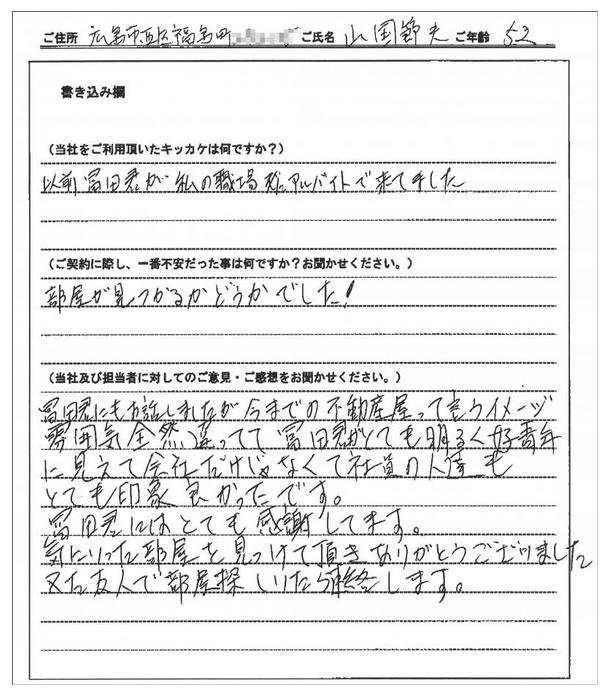 ご住所 広島市西区福島町 ご氏名 山国節夫 ご年齢 52
書き込み欄
(当社をご利用頂いたキッカケは何ですか?)
以前冨田君が私の職場にアルバイトで来てました
(ご契約に際し、一番不安だった事は何ですか?お聞かせください。)
部屋が見つかるかどうかでした!
(当社及び担当者に対してのご意見・ご感想をお聞かせください。)
冨田君にもお話しましたが今までの不動産屋って言うイメージ
雰囲気全然違ってて冨田君がとても明るく好青年
に見えて会社だけじゃなくて社員の人達も
とても印象良かったです。
冨田君にはとても感謝してます。
気にいった部屋を見つけて頂きありがとうございました
又た友人で部屋探しいたら連絡します。